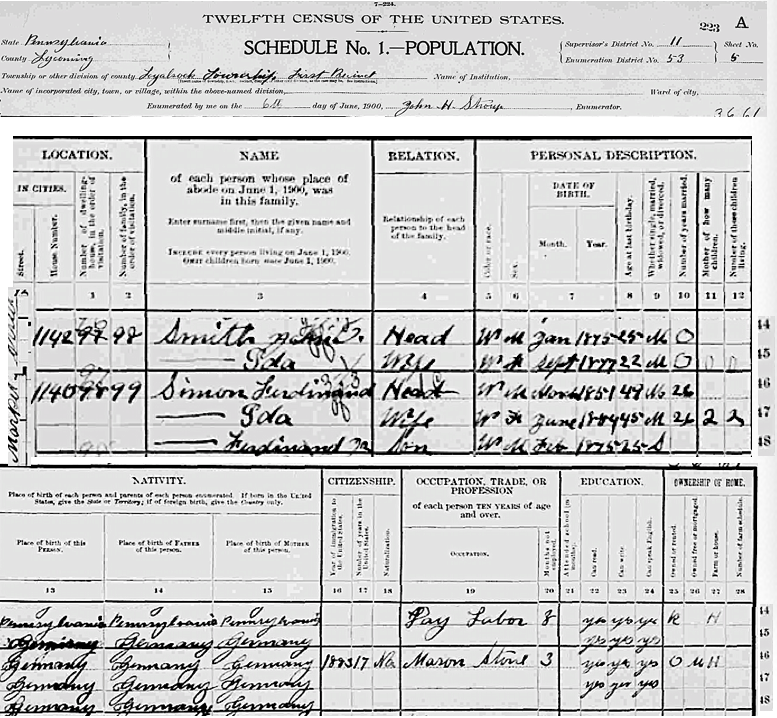 7—224.
TWELFTH CENSUS OF THE UNITED STATES.
223 A
State Pennsylvania
County Lycoming
SCHEDULE No. 1.—POPULATION.
Supervisor's District No. 11
Enumeration District No. 53
Sheet No. 5
Township or other division of county Loyalsock Township First Precinct
Name of Institution,
Name of incorporated city, town, or village, within the above-named division,
Ward of city,
Enumerated by me on the 6th day of June, 1900, John H. Stroup, Enumerator.
LOCATION. NAME RELATION. PERSONAL DESCRIPTION.
IN CITIES.
Street.
House Number.
Number of dwelling-house, in the order of visitation.
Number of family, in the order of visitation.
of each person whose place of abode on June 1, 1900, was in this family.
Enter surname first, then the given name and middle initial, if any.
INCLUDE every person living on June 1, 1900. OMIT children born since June 1, 1900.
Relationship of each person to the head of the family.
Color or race.
Sex.
DATE OF BIRTH.
Month. Year.
Age at last birthday.
Whether single, married, widowed, or divorced.
Number of years married.
Mother of how many children.
Number of these children living.
1 2 3 4 5 6 7 8 9 10 11 12
1142 98 Smith Head W M Jan 1875 25 M 0 44
Ida Wife W F Sept 1877 22 M 0 0 0 45
1140 99 Simon Ferdinand Head W M Nov 1851 49 M 26 46
Ida Wife W F June 45 M 26 2 2 47
Ferdinand Jr Son W M Feb 1875 25 S 48
NATIVITY. CITIZENSHIP. OCCUPATION, TRADE, OR PROFESSION EDUCATION. OWNERSHIP OF HOME.
Place of birth of each person and parents of each person enumerated. If born in the United States, give the State or Territory; if of foreign birth, give the Country only.
of each person TEN YEARS of age and over.
Place of birth of this PERSON.
Place of birth of FATHER of this person.
Place of birth of MOTHER of this person.
Year of immigration to the United States.
Number of years in the United States.
Naturalization.
OCCUPATION.
Months not employed.
Attended school (in months).
Can read.
Can write.
Can speak English.
Owned or rented.
Owned free or mortgaged.
Farm or house.
Number of farm schedule.
13 14 15 16 17 18 19 20 21 22 23 24 25 26 27 28
Pennsylvania Pennsylvania Pennsylvania Day Labor 8 yes yes yes R H 44
Germany Germany Germany yes yes yes 45
Germany Germany Germany 1883 17 Na Mason Stone 3 yes yes yes O M H 46
Germany Germany Germany yes yes yes 47
Germany Germany Germany 48